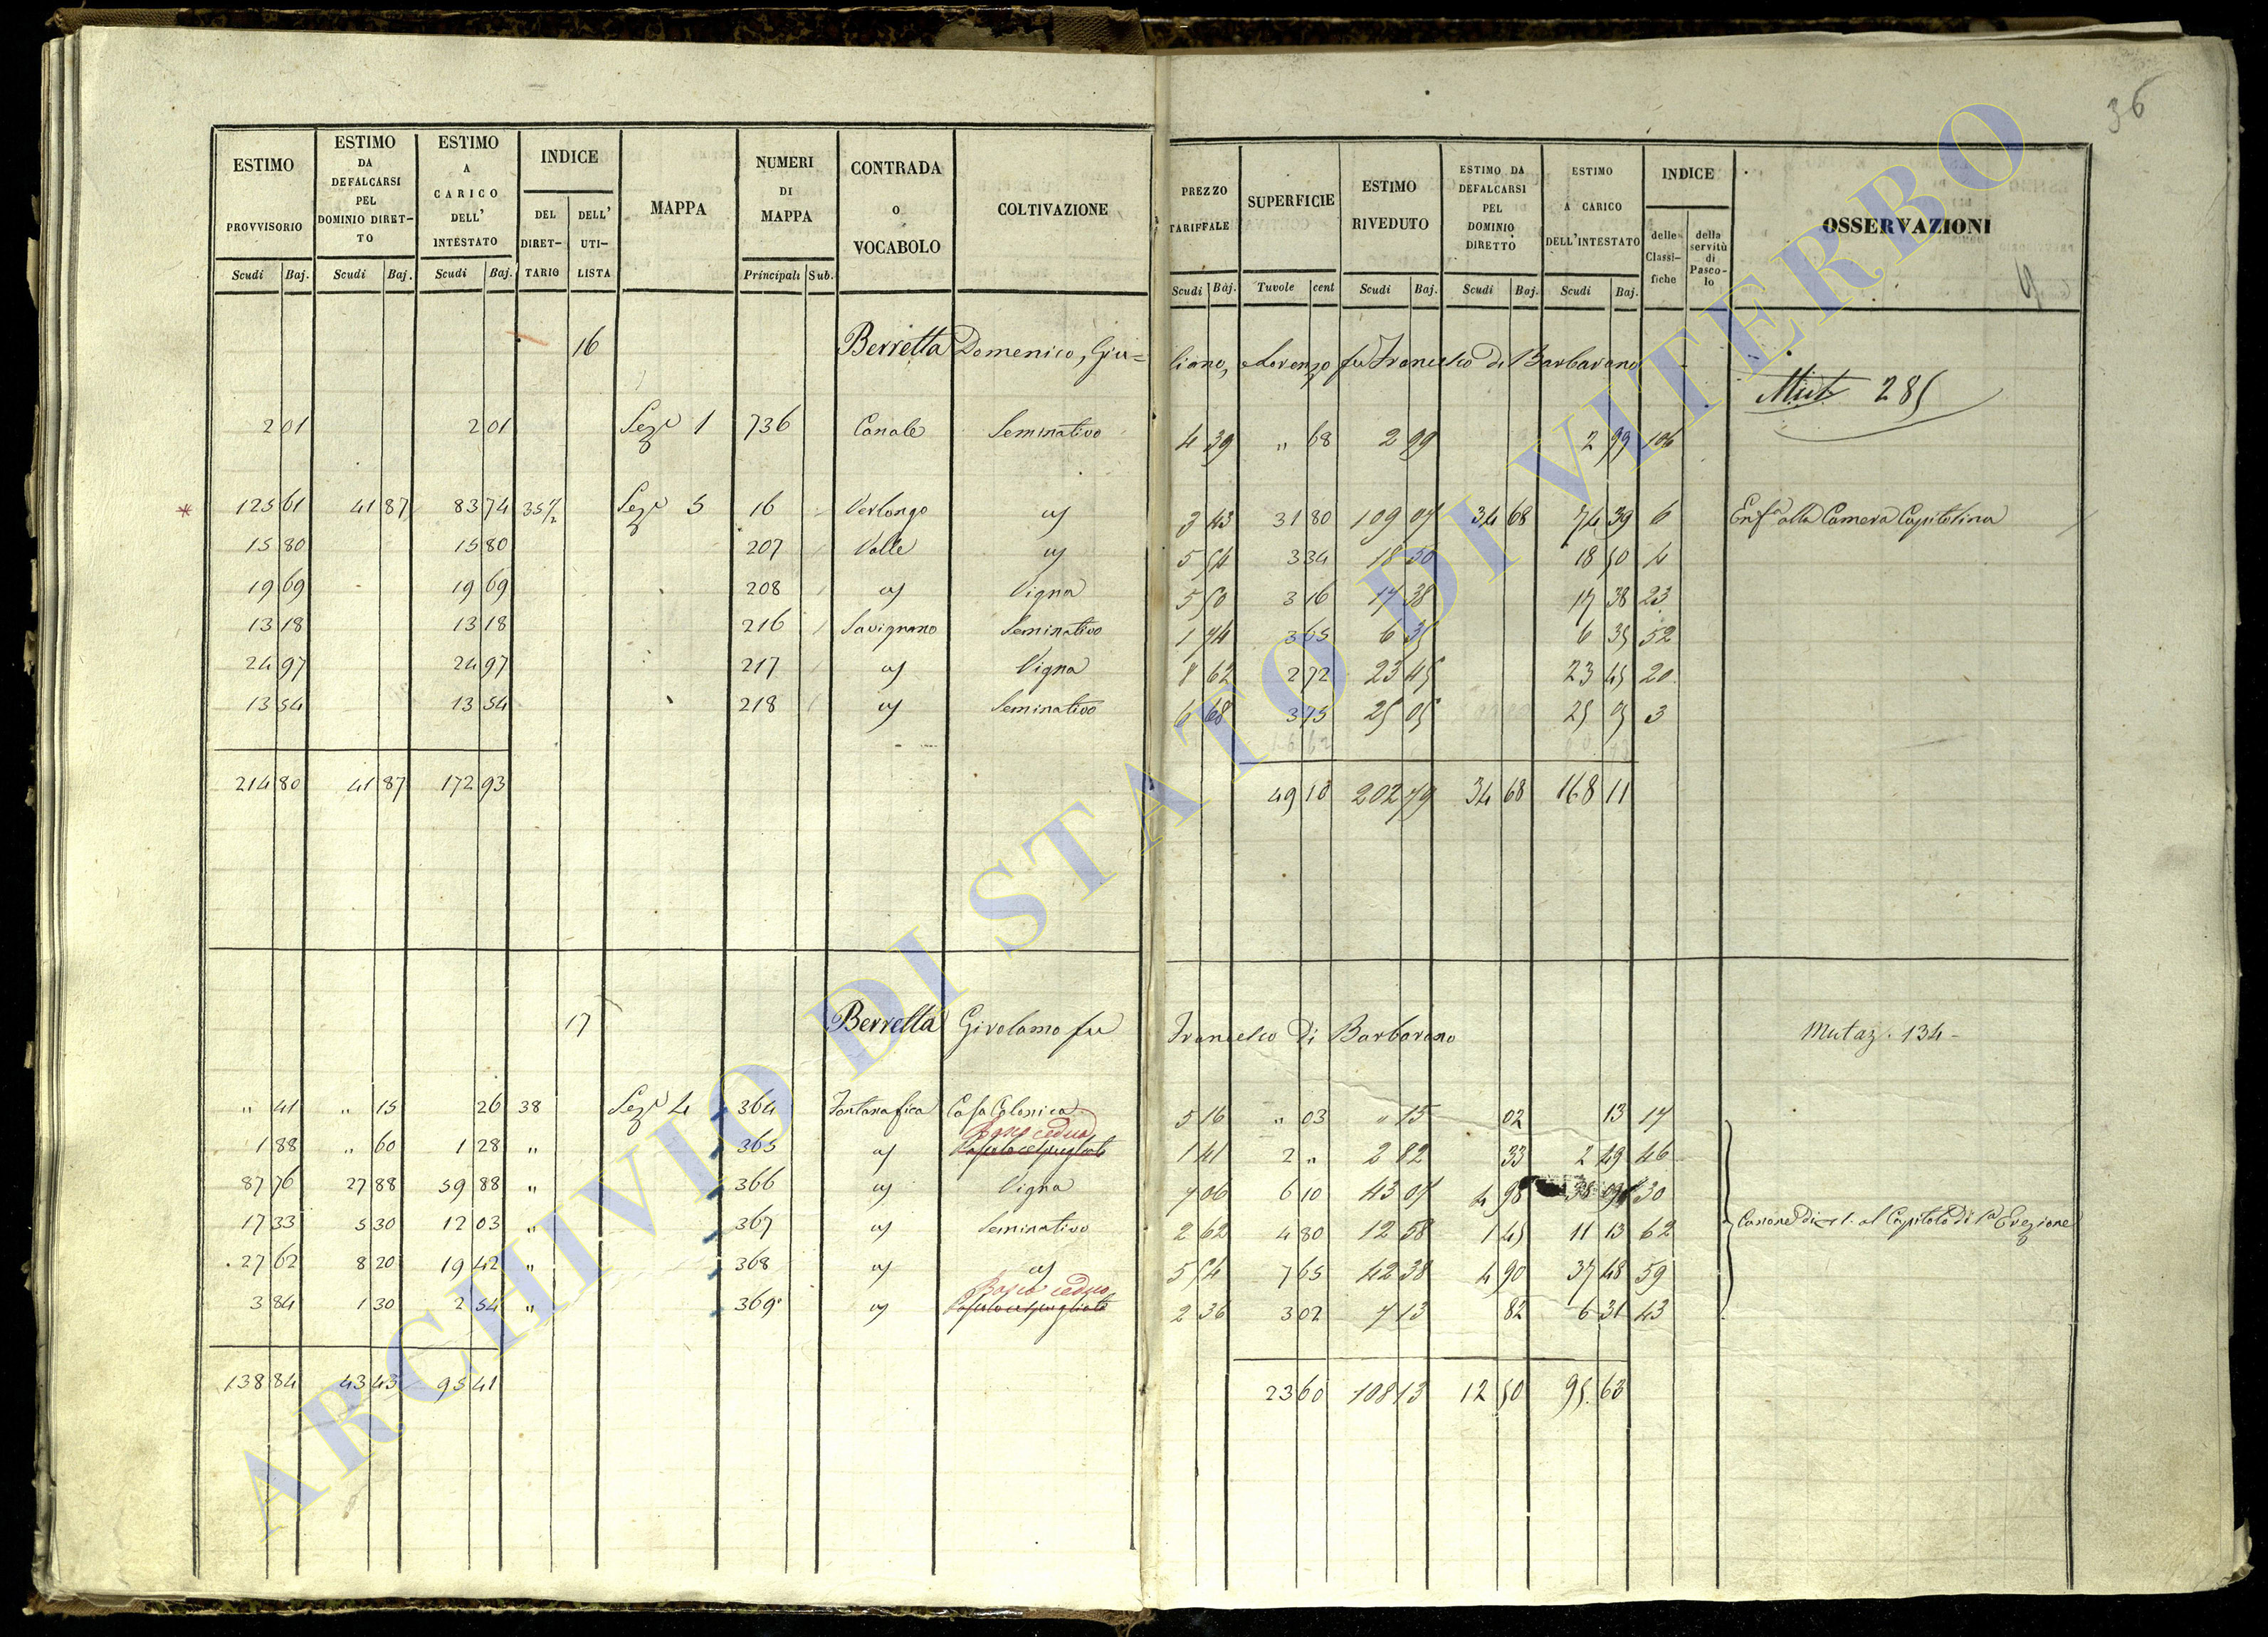 36
ESTIMO PROVVISORIO Scudi Baj.
ESTIMO DA DEFALCARSI PEL DOMINIO DIRET-TO Scudi Baj.
ESTIMO A CARICO DELL' INTESTATO Scudi Baj.
INDICE DEL DIRET-TARIO DELL' UTI-LISTA
MAPPA
NUMERI DI MAPPA Principali Sub.
CONTRADA O VOCABOLO
COLTIVAZIONE
PREZZO TARIFFALE Scudi Baj.
SUPERFICIE Tavole cent
ESTIMO RIVEDUTO Scudi Baj.
ESTIMO DA DEFALCARSI PEL DOMINIO DIRETTO Scudi Baj.
ESTIMO A CARICO DELL'INTESTATO Scudi Baj.
INDICE delle Classi-fiche della servitù di Pasco-lo
OSSERVAZIONI
9
16 Berretta Domenico, Giu= liano, e Lorenzo fu Francesco di Barbarano
Mut. 285
2 01 2 01 Seze 1 736 Canale Seminativo 4 39 " 68 2 99 2 99 106
* 125 61 41 87 83 74 35½ Seze 5 16 Verlongo as 3 43 31 80 109 07 34 68 74 39 6 Enfa alla Camera Capitolina
15 80 15 80 207 Valle as 5 54 3 34 18 50 18 50 4
19 69 19 69 208 as Vigna 5 50 3 16 17 38 17 38 23
13 18 13 18 216 Savignano Seminativo 1 74 3 65 6 35 6 35 52
24 97 24 97 217 as Vigna 8 62 2 72 23 45 23 45 20
13 54 13 54 218 as Seminativo 6 68 3 75 25 05 25 05 3
214 80 41 87 172 93 49 10 202 79 34 68 168 11
17 Berretta Girolamo fu Francesco di Barbarano Mutaz. 134
" 41 " 15 26 38 Seze 4 364 Fontanafica Casa Colonica 5 16 " 03 " 15 02 13 17
Bosco ceduo
1 88 " 60 1 28 " 365 as Pascolo cespugliato 1 41 2 " 2 82 33 2 49 46
87 76 27 88 59 88 " 366 as Vigna 7 06 6 10 43 07 4 98 38 09 30
17 33 5 30 12 03 " 367 as Seminativo 2 62 4 80 12 58 1 45 11 13 62 Canone di 1. al Capitolo di 1a Erezione
27 62 8 20 19 42 " 368 as as 5 54 7 65 42 38 4 90 37 48 59
Bosco ceduo
3 84 1 30 2 54 " 369 as Pascolo cespugliato 2 36 3 02 7 13 82 6 31 43
138 84 43 43 95 41 23 60 108 13 12 50 95 63
ARCHIVIO DI STATO DI VITERBO